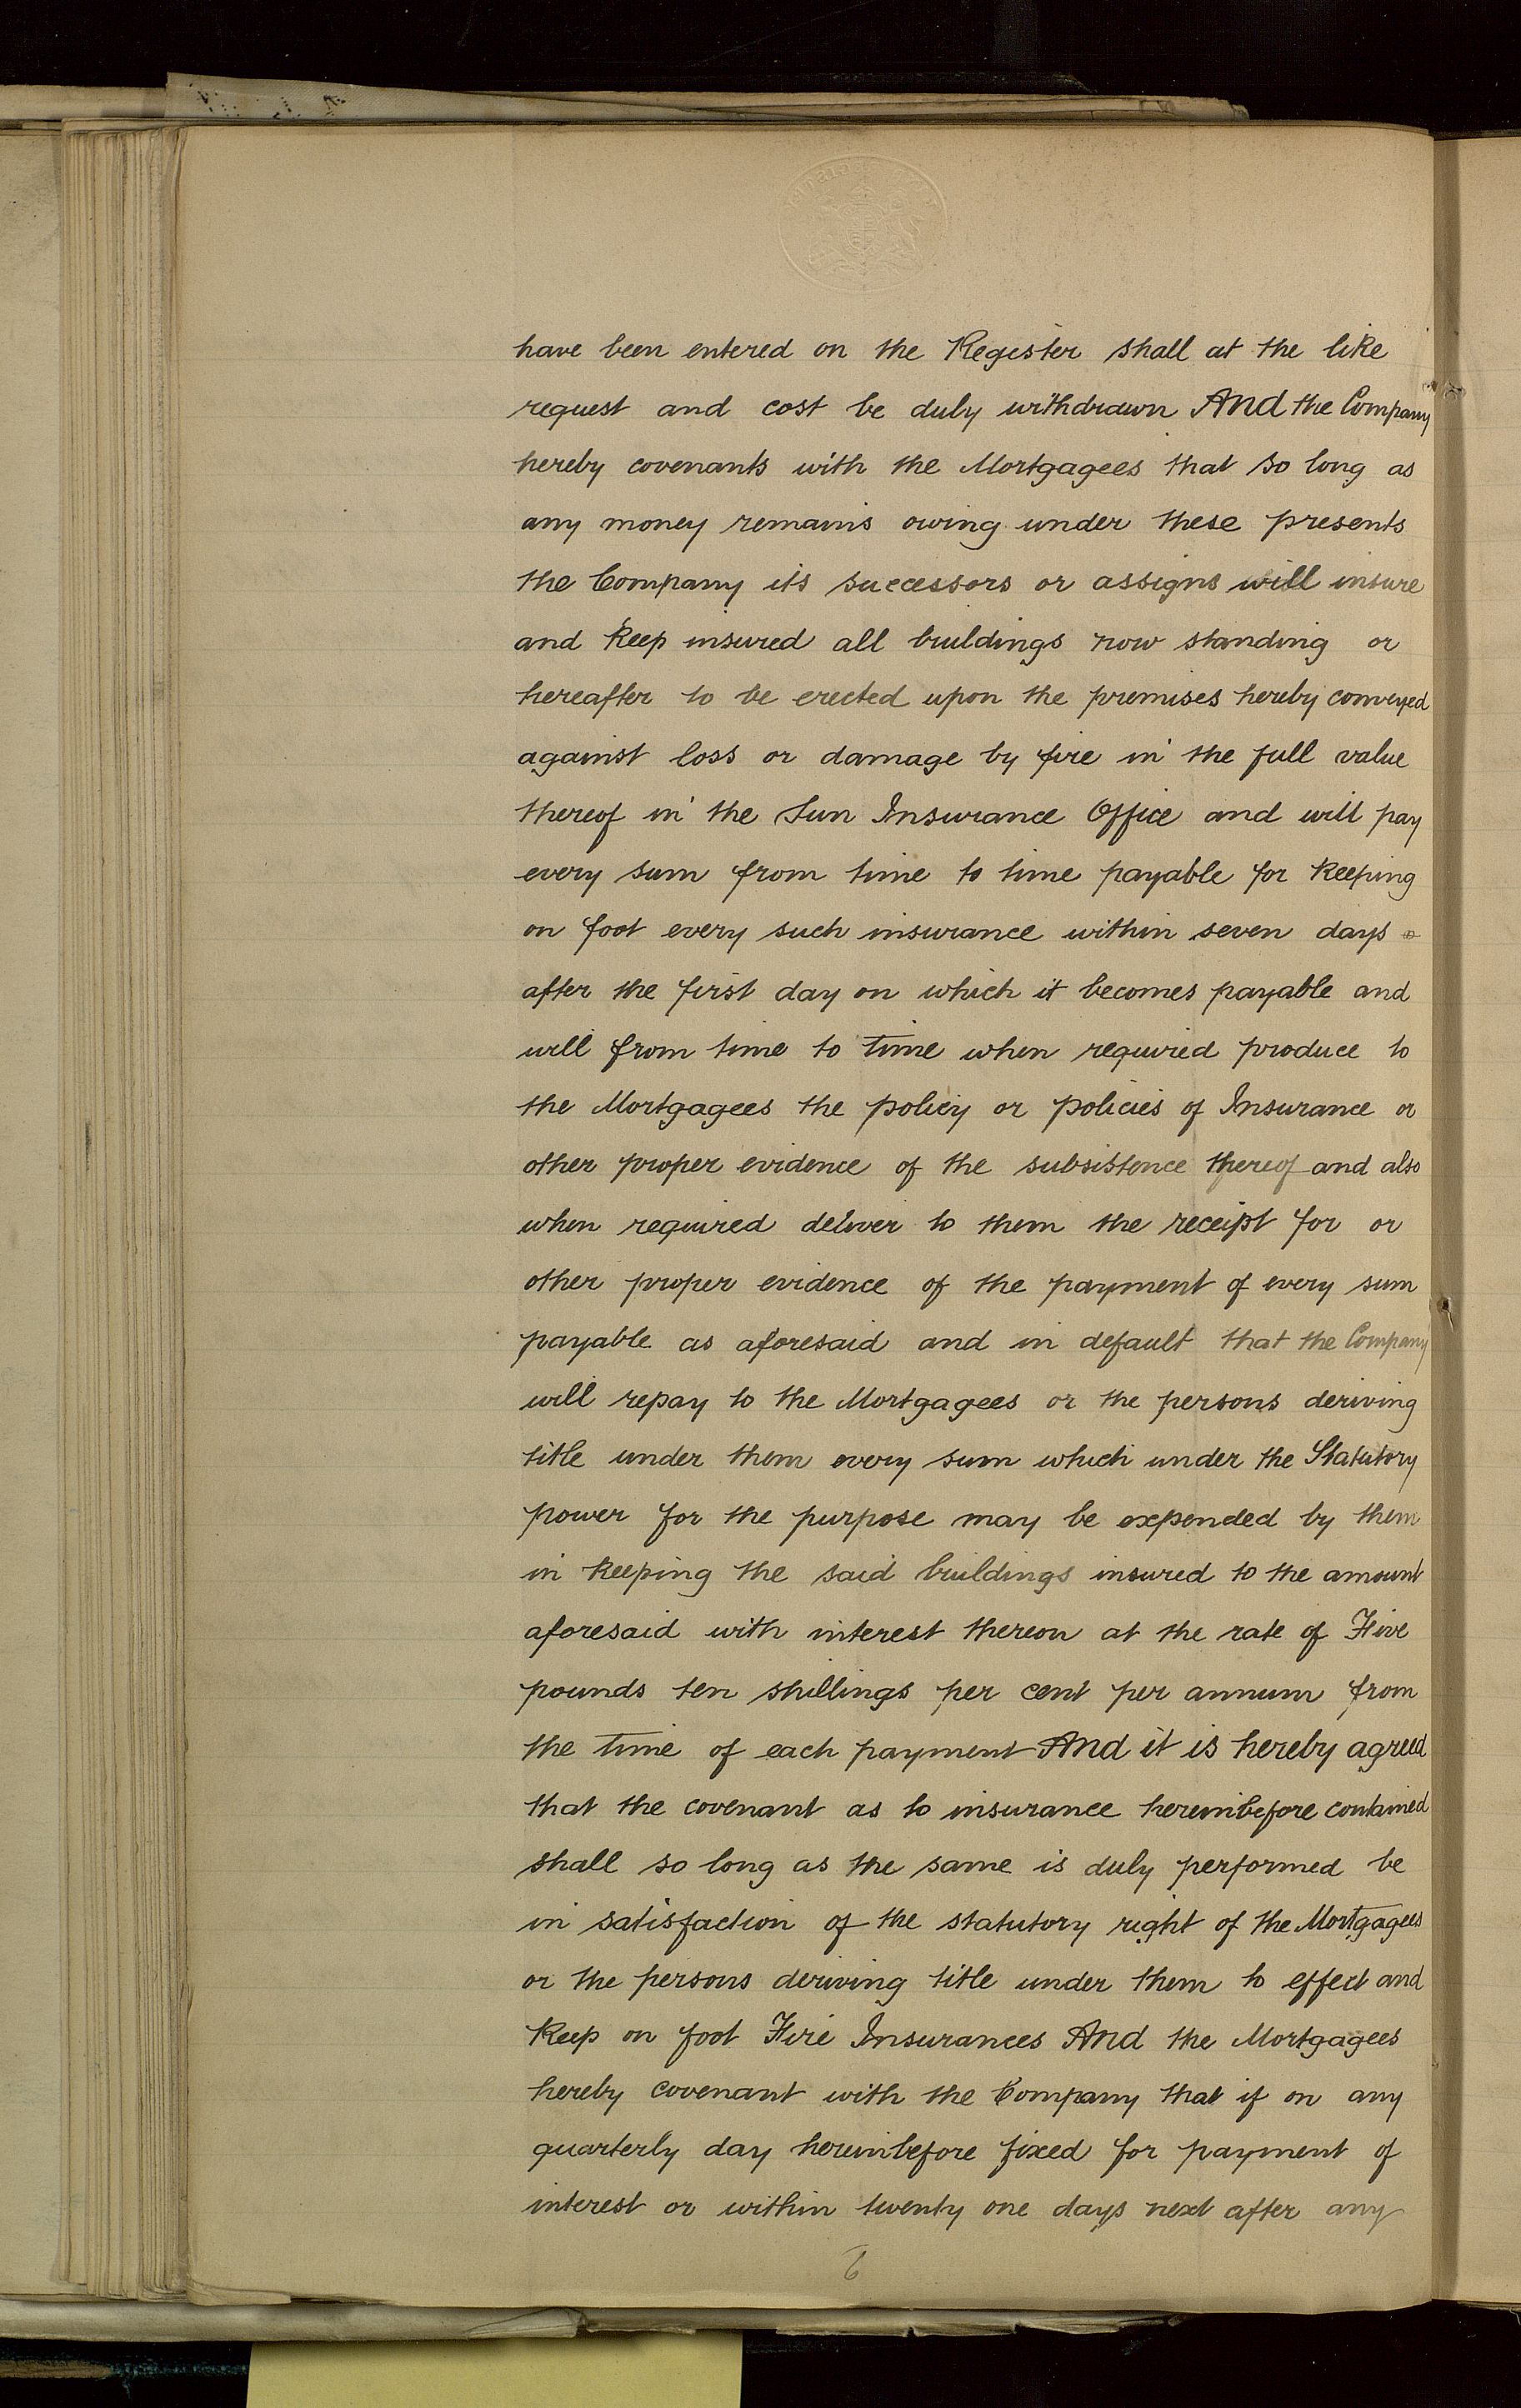 have been entered on the Register shall at the like
request and cost be duly withdrawn And the Company
hereby covenants with the Mortgagees that so long as
any money remains owing under these presents
the Company its successors or assigns will insure
and keep insured all buildings now standing or
hereafter to be erected upon the premises hereby conveyed
against loss or damage by fire in the full value
thereof in the Sun Insurance Office and will pay
every sum from time to time payable for keeping
on foot every such insurance within seven days
after the first day on which it becomes payable and
will from time to time when required produce to
the Mortgagees the policy or policies of Insurance or
other proper evidence of the subsistence thereof and also
when required deliver to them the receipt for or
other proper evidence of the payment of every sum
payable as aforesaid and in default that the Company
will repay to the Mortgagees or the persons deriving
title under them every sum which under the Statutory
power for the purpose may be expended by them
in keeping the said buildings insured to the amount
aforesaid with interest thereon at the rate of Five
pounds ten shillings per cent per annum from
the time of each payment And it is hereby agreed
that the covenant as to insurance hereinbefore contained
shall so long as the same is duly performed be
in satisfaction of the statutory right of the Mortgagees
or the persons deriving title under them to effect and
keep on foot Fire Insurances And the Mortgagees
hereby covenant with the Company that if on any
quarterly day hereinbefore fixed for payment of
interest or within twenty one days next after any
6